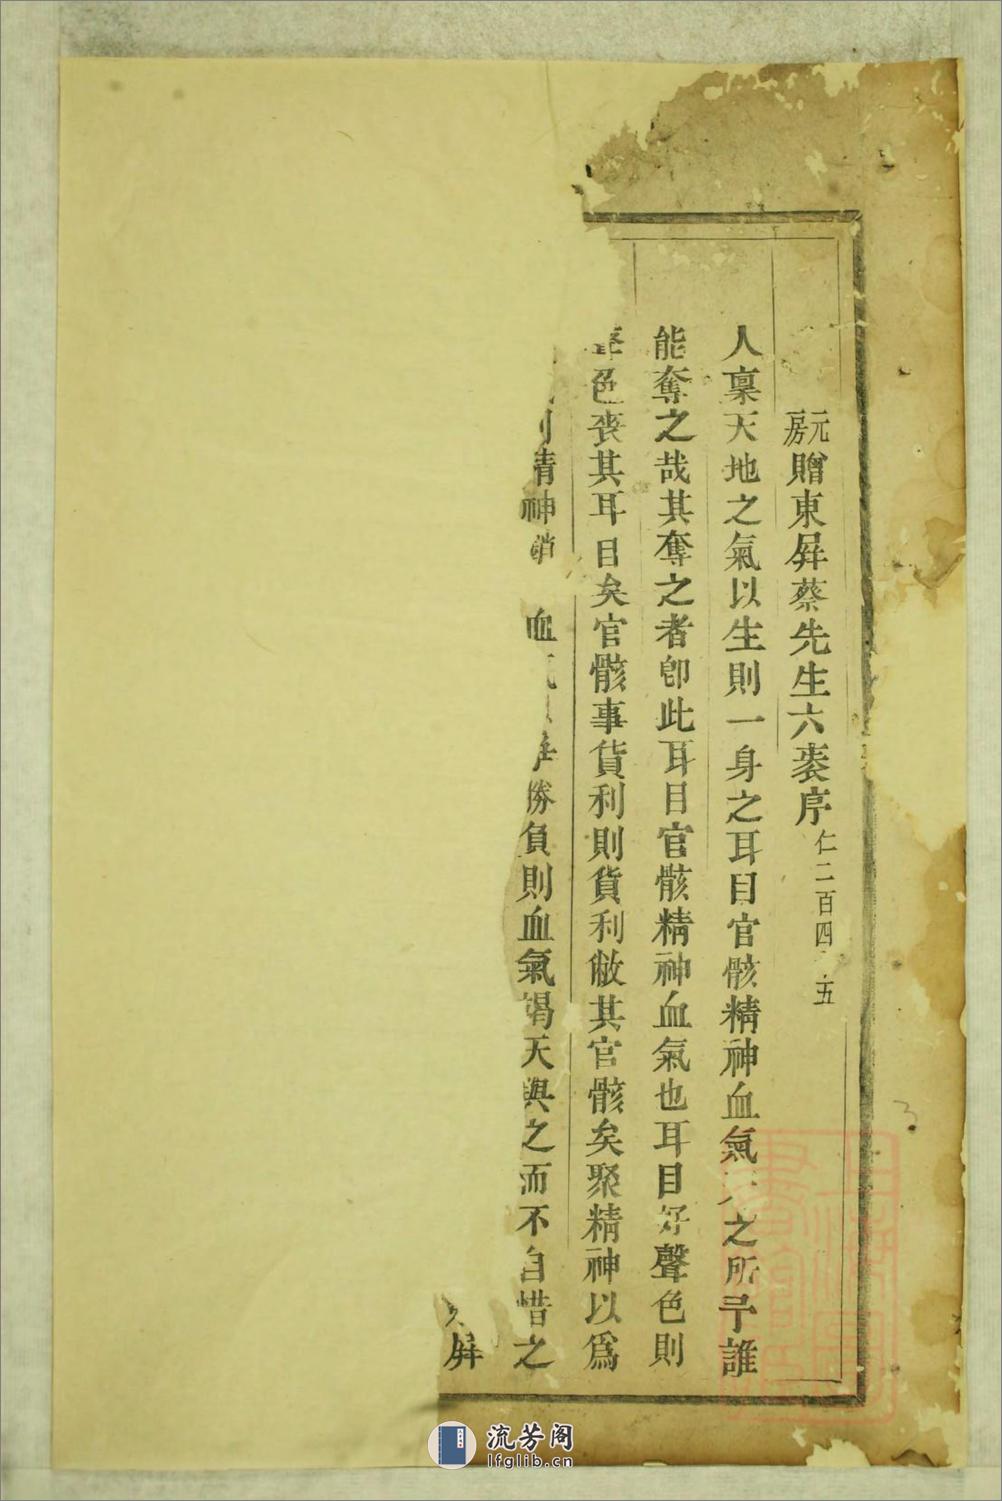 元房贈東屏蔡先生六袠序仁二百四 五
人稟天地之氣以生則一身之耳目官骸精神血氣 之所予誰
能奪之哉其奪之者卽此耳目官骸精神血氣也耳目好聲色則
色喪其耳目矣官骸事貨利則貨利敝其官骸矣聚精神以爲
則精神 血 勝負則血氣竭天與之而不自惜之
屏
流芳阁
lfglib.cn